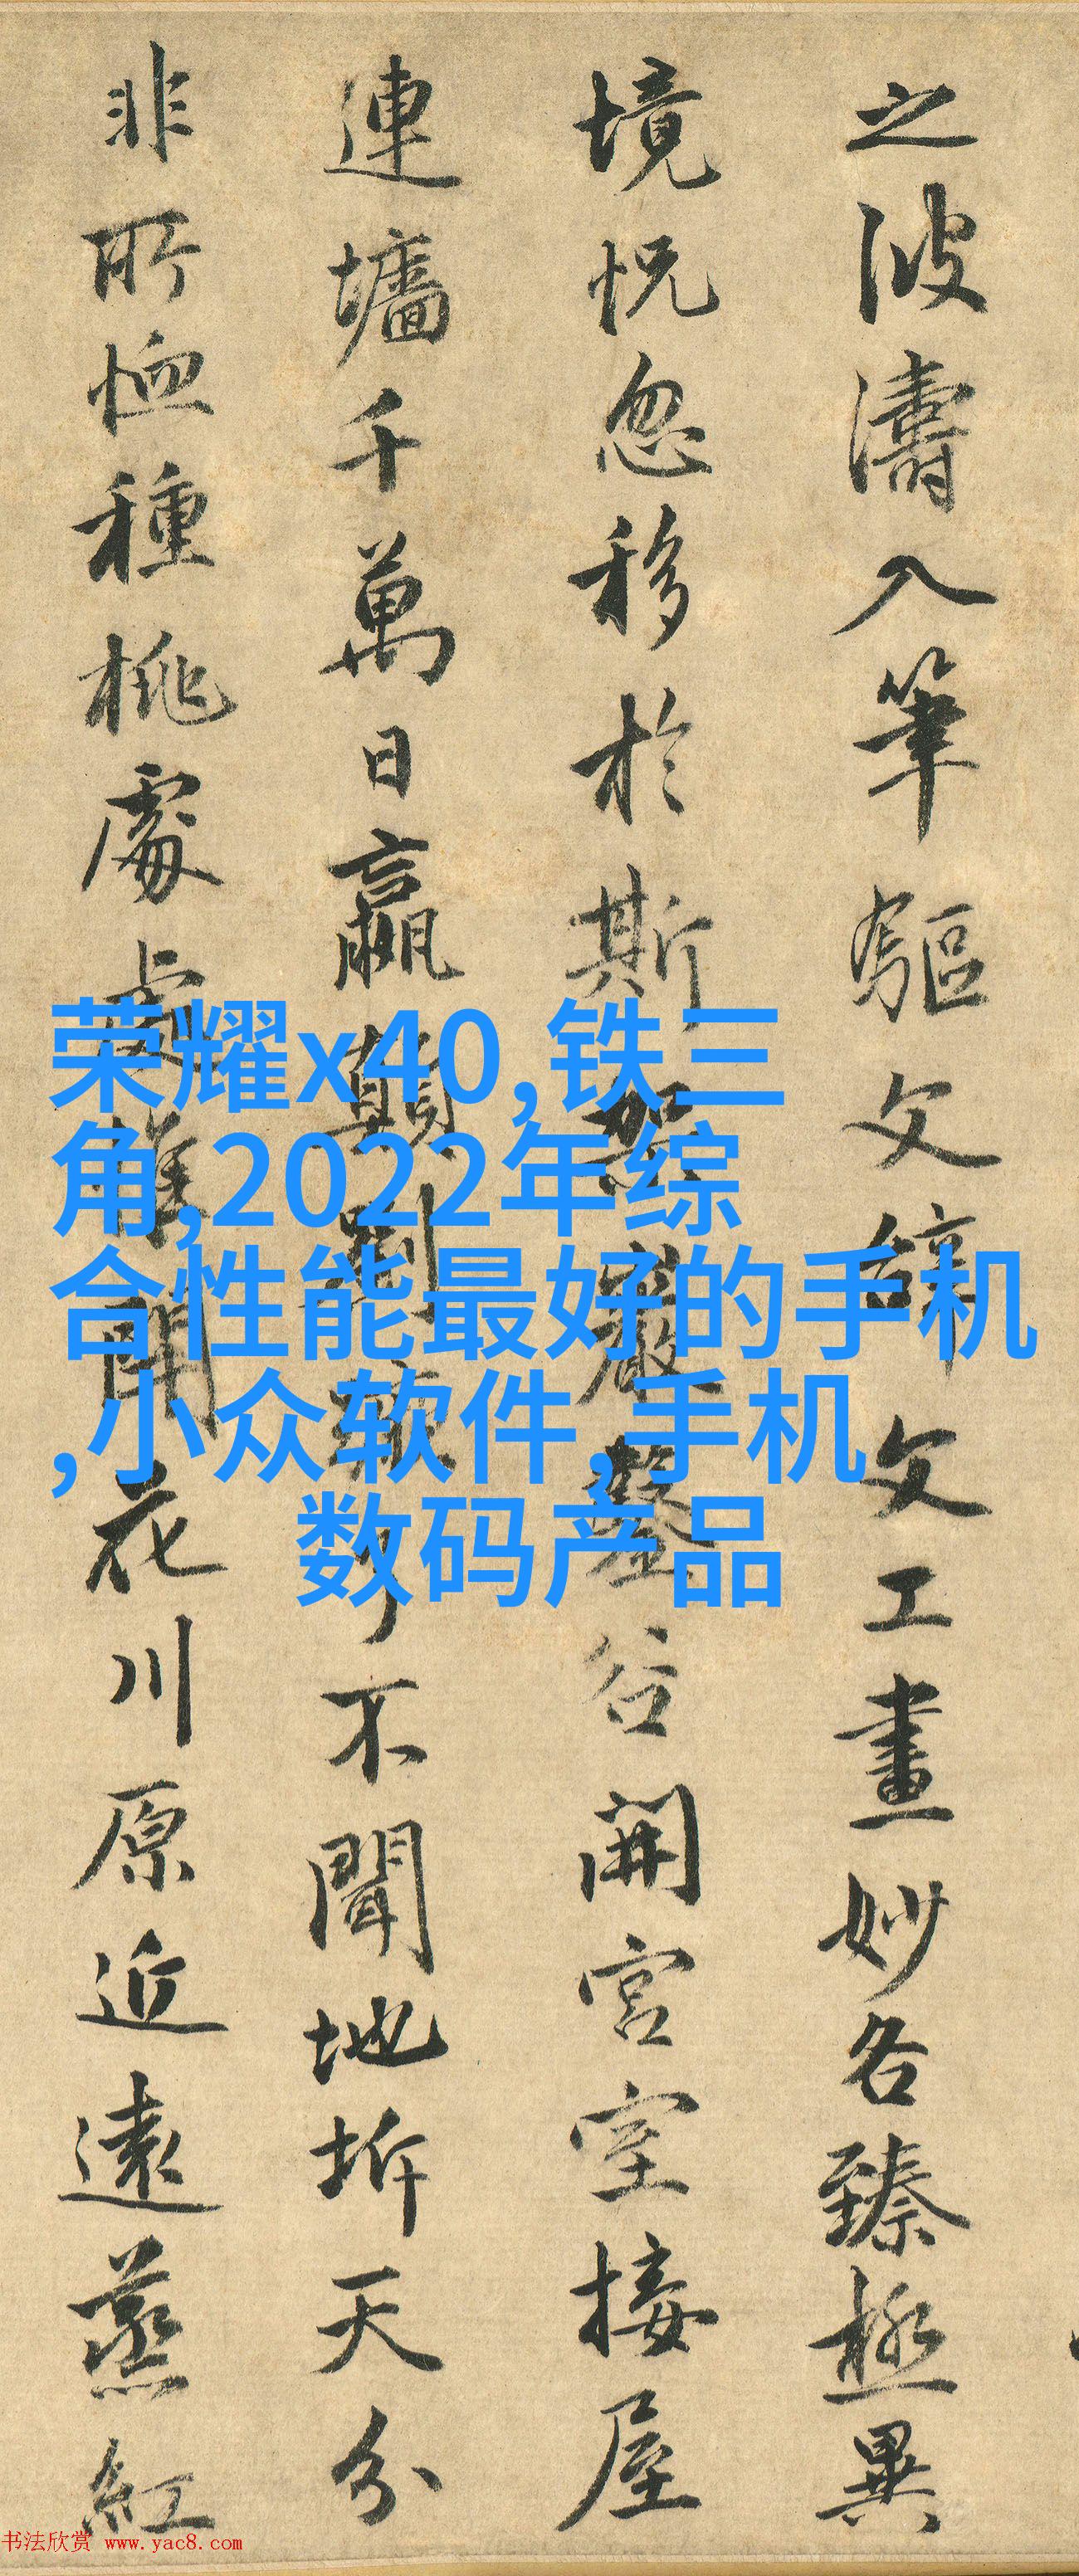 之波濤入筆驅文辭文工畫妙各臻極異
境怳忽移於斯架巖鑿谷開宮室接屋
連墻千萬日嬴顛劉蹶了不聞地坼天分
非所恤種桃處處惟開花川原近遠蒸紅
荣耀x40,铁三
角,2022年综
合性能最好的手机
,小众软件,手机
数码产品
书法欣赏 www.yac8.com